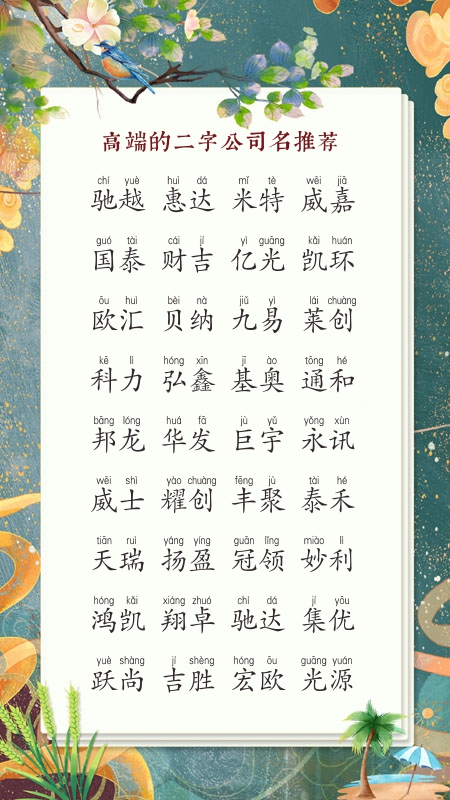 高端的二字公司名推荐
chí yuè huì dá mǐ tè wēi jiā
驰越 惠达 米特 威嘉
guó tài cái jí yì guāng kǎi huán
国泰 财吉 亿光 凯环
ōu huì bèi nà jiǔ yì lái chuàng
欧汇 贝纳 九易 莱创
kē lì hóng xīn jī ào tōng hé
科力 弘鑫 基奥 通和
bāng lóng huá fā jù yǔ yǒng xùn
邦龙 华发 巨宇 永讯
wēi shì yào chuàng fēng jù tài hé
威士 耀创 丰聚 泰禾
tiān ruì yáng yíng guān lǐng miào lì
天瑞 扬盈 冠领 妙利
hóng kǎi xiáng zhuó chí dá jí yōu
鸿凯 翔卓 驰达 集优
yuè shàng jí shèng hóng ōu guāng yuán
跃尚 吉胜 宏欧 光源